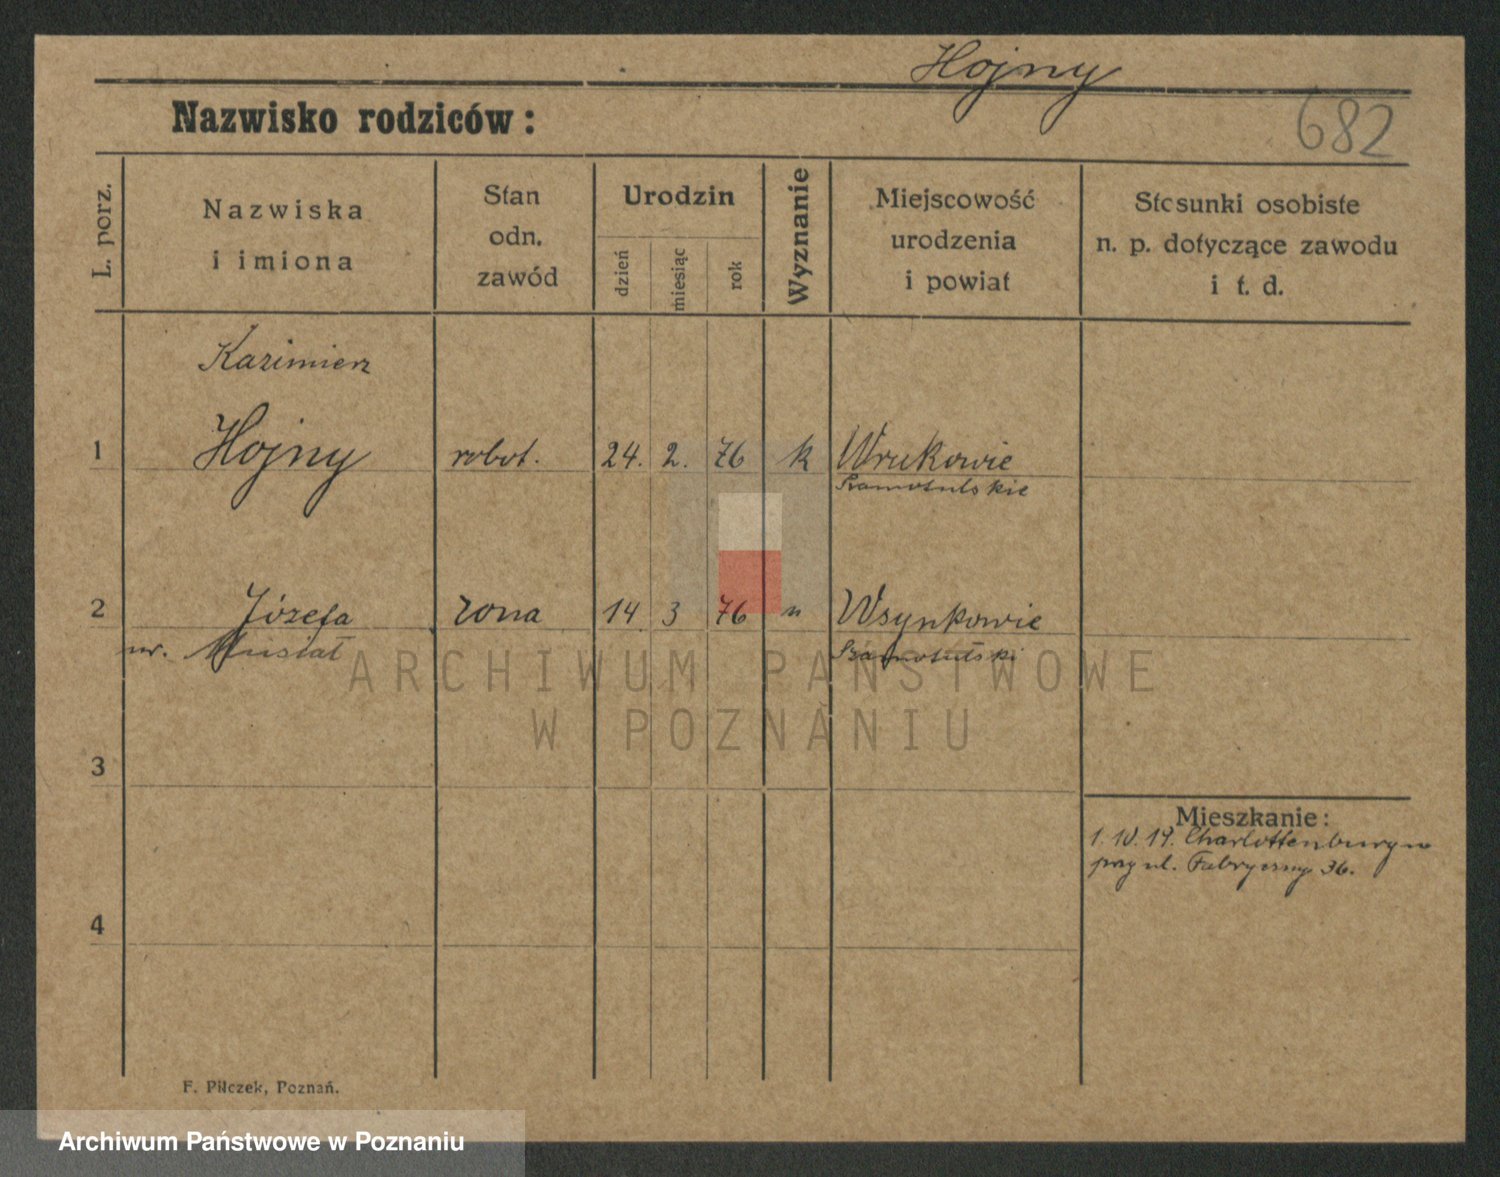 Hojny
682
Nazwisko rodziców:
L. porz.
Nazwiska
i imiona
Stan
odn.
zawód
Urodzin
dzień
miesiąc
rok
Wyznanie
Miejscowość
urodzenia
i powiat
Stosunki osobiste
n. p. dotyczące zawodu
i t. d.
Kazimierz
1 Hojny robot. 24. 2. 76 k Wrukowie
Szamotulskie
2 Józefa żona 14 3 76 " Wsynkowie
ur. Musiał Szamotulski
3
Mieszkanie:
1. 10. 19. Charlottenburg
przy ul. Fabrycznej 36.
4
F. Pilczek, Poznań.
ARCHIWUM PAŃSTWOWE
W POZNANIU
Archiwum Państwowe w Poznaniu